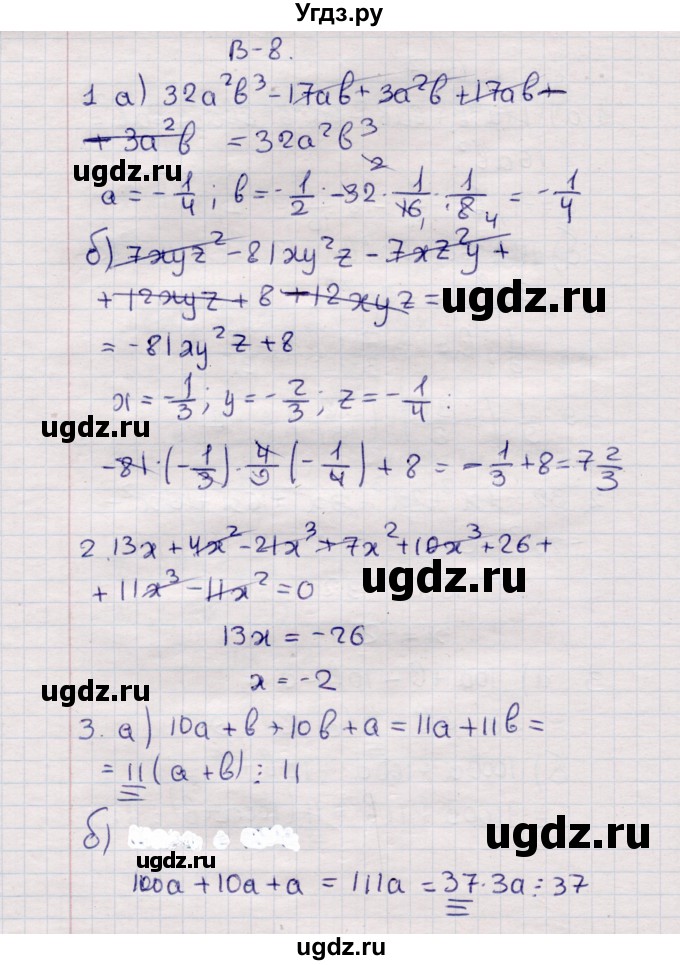 Угдз.ру
В-8.
1 а) 32a²b³ - 17ab + 3a²b + 17ab -
+ 3a²b = 32a²b³
ugdz.ru
a = -1/4; b = -1/2: -32 · 1/16 · 1/8 = -1/4
б) 7xyz² - 81xy²z - 7xz²y +
+ 12xyz + 8 + 12xyz =
ugdz.ru
= -81xy²z + 8
x = -1/3; y = -2/3; z = -1/4 :
ugdz.ru
-81 · (-1/3) · 4/9 (-1/4) + 8 = -1/3 + 8 = 7 2/3
2. 13x + 4x² - 21x³ + 7x² + 10x³ + 26 +
+ 11x³ - 11x² = 0
ugdz.ru
13x = -26
x = -2
ugdz.ru
3. а) 10a + b + 10b + a = 11a + 11b =
= 11(a + b) ⋮ 11
ugdz.ru
б)
ugdz.ru
100a + 10a + a = 111a = 37 · 3a ⋮ 37
ugdz.ru